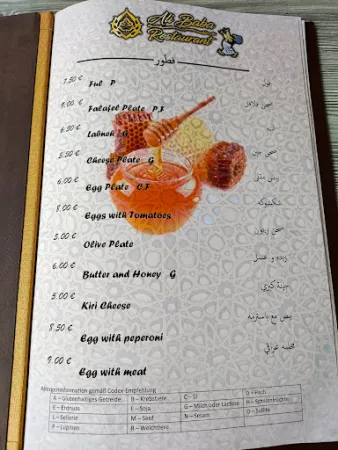 Ali Baba
Restaurant
فطور
7.50 € Ful P فول
9.00 € Falafel Plate P,F صحن فلافل
6.50 € Labneh G لبنه
5.50 € Cheese Plate G صحن جبن
6.00 € Egg Plate C,F
8.00 € Eggs with Tomatoes شكشوكه
5.00 € Olive Plate صحن زيتون
6.00 € Butter and Honey G زبده و عسل
5.00 € Kiri Cheese جبنة كيري
8.50 € Egg with peperoni بيض مع باسترمه
9.00 € Egg with meat مخلمه عراقي
Allergeninformation gemäß Codex-Empfehlung
A – Glutenhaltiges Getreide B – Krebstiere C – Ei D – Fisch
E – Erdnuss F – Soja G – Milch oder Laktose H – Schalenfrüchte
L – Sellerie M – Senf N – Sesam O – Sulfite
P – Lupinen R – Weichtiere